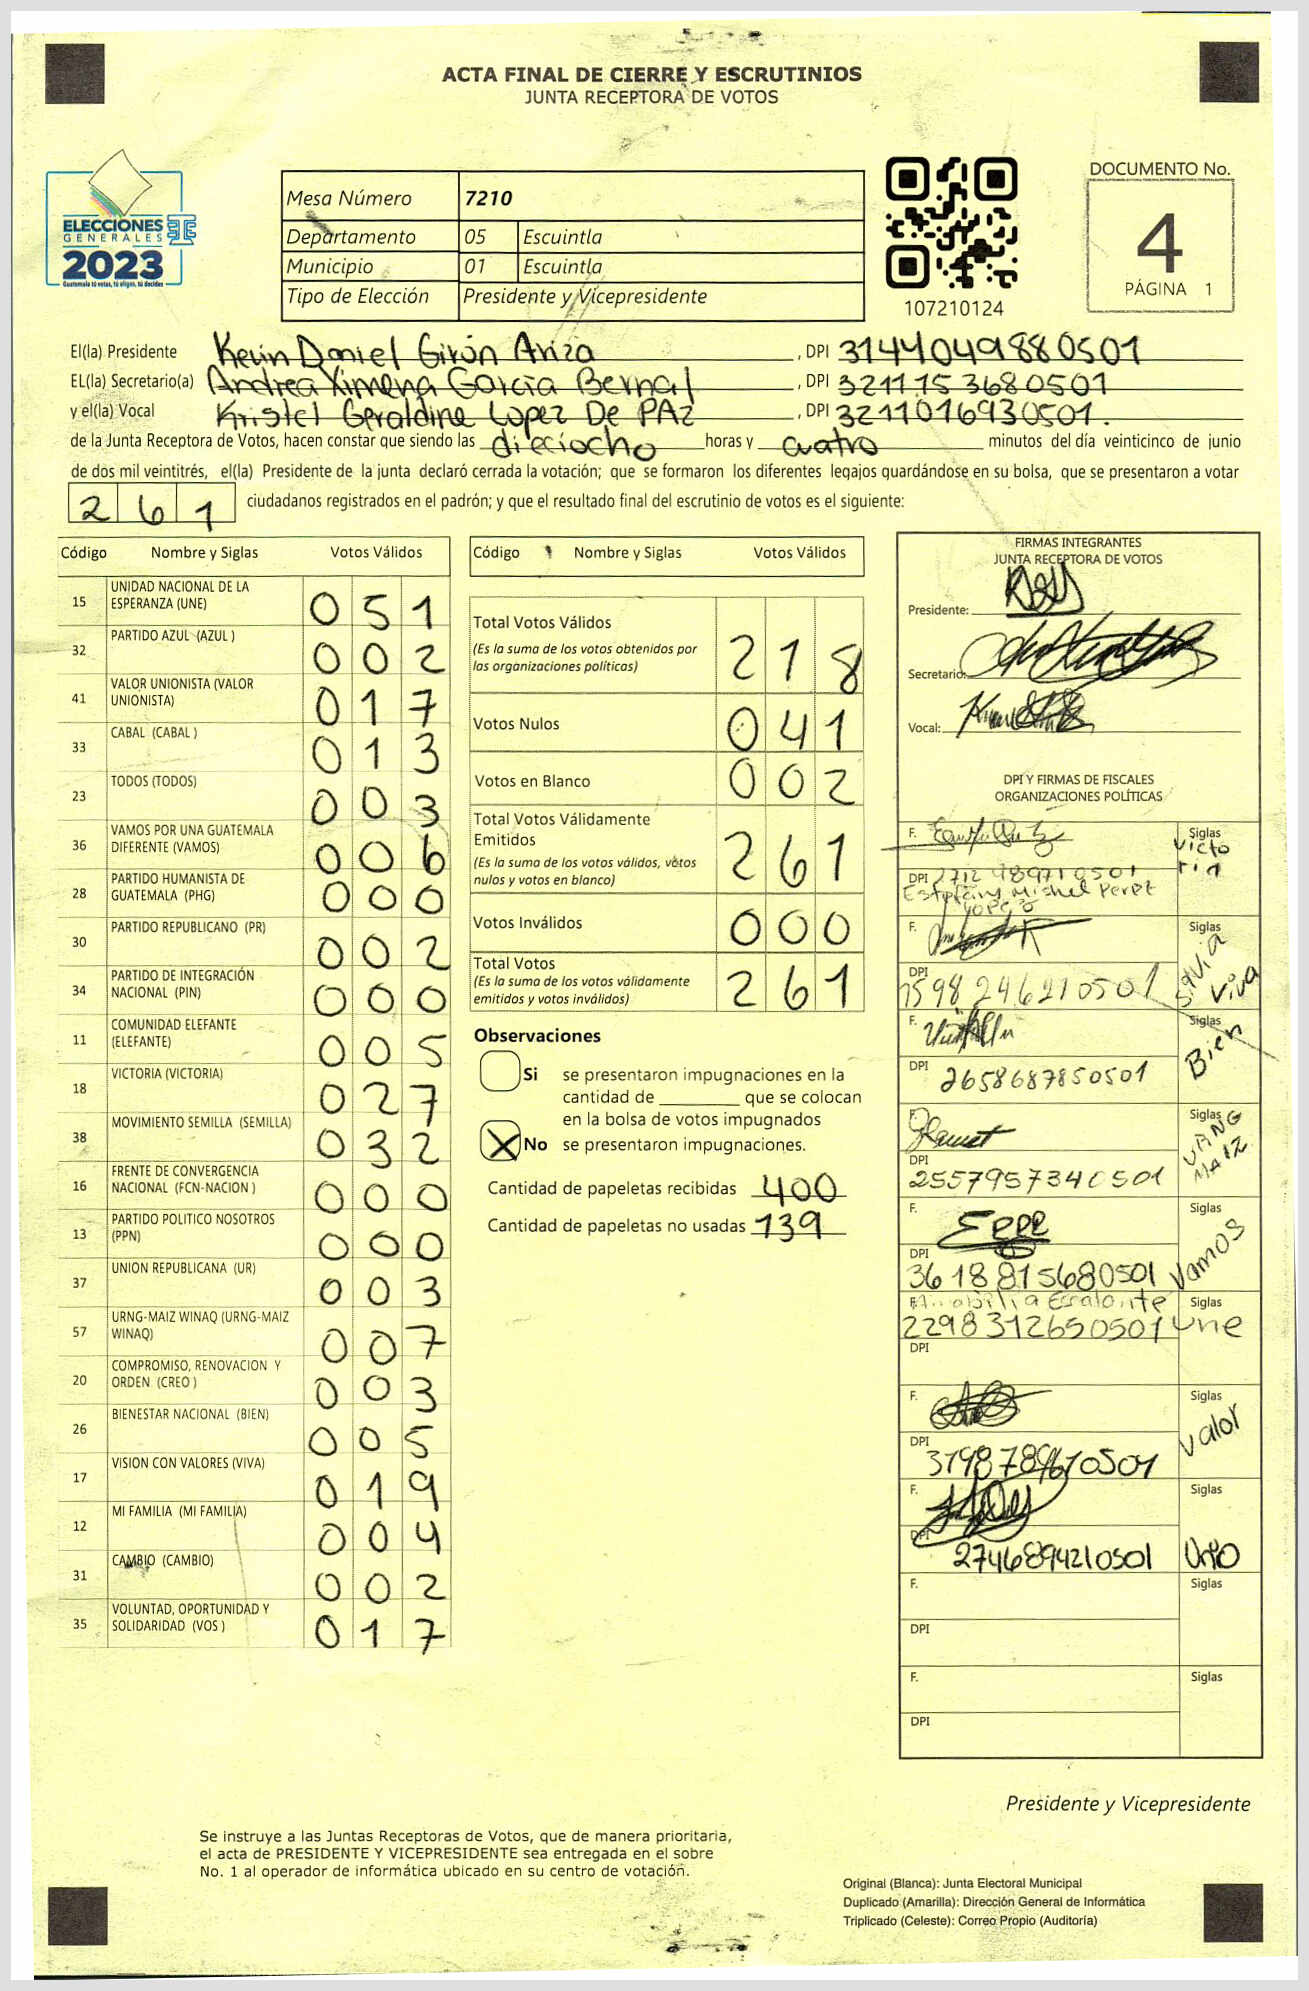 ACTA FINAL DE CIERRE Y ESCRUTINIOS
JUNTA RECEPTORA DE VOTOS
ELECCIONES
GENERALES
2023
Guatemala tú votas, tú eliges, tú decides
Mesa Número 7210
Departamento 05 Escuintla
Municipio 01 Escuintla
Tipo de Elección Presidente y Vicepresidente
107210124
DOCUMENTO No.
4
PÁGINA 1
El(la) Presidente Kevin Daniel Girón Ariza, DPI 3144049880501
EL(la) Secretario(a) Andrea Ximena García Bernal, DPI 3211153680501
y el(la) Vocal Kristel Geraldine Lopez De PAZ, DPI 3211016930501.
de la Junta Receptora de Votos, hacen constar que siendo las dieciocho horas y cuatro minutos del día veinticinco de junio
de dos mil veintitrés, el(la) Presidente de la junta declaró cerrada la votación; que se formaron los diferentes legajos guardándose en su bolsa, que se presentaron a votar
261 ciudadanos registrados en el padrón; y que el resultado final del escrutinio de votos es el siguiente:
Código Nombre y Siglas Votos Válidos
15 UNIDAD NACIONAL DE LA ESPERANZA (UNE) 051
32 PARTIDO AZUL (AZUL ) 002
41 VALOR UNIONISTA (VALOR UNIONISTA) 017
33 CABAL (CABAL ) 013
23 TODOS (TODOS) 003
36 VAMOS POR UNA GUATEMALA DIFERENTE (VAMOS) 006
28 PARTIDO HUMANISTA DE GUATEMALA (PHG) 000
30 PARTIDO REPUBLICANO (PR) 002
34 PARTIDO DE INTEGRACIÓN NACIONAL (PIN) 000
11 COMUNIDAD ELEFANTE (ELEFANTE) 005
18 VICTORIA (VICTORIA) 027
38 MOVIMIENTO SEMILLA (SEMILLA) 032
16 FRENTE DE CONVERGENCIA NACIONAL (FCN-NACION ) 000
13 PARTIDO POLITICO NOSOTROS (PPN) 000
37 UNION REPUBLICANA (UR) 003
57 URNG-MAIZ WINAQ (URNG-MAIZ WINAQ) 007
20 COMPROMISO, RENOVACION Y ORDEN (CREO ) 003
26 BIENESTAR NACIONAL (BIEN) 005
17 VISION CON VALORES (VIVA) 019
12 MI FAMILIA (MI FAMILIA) 004
31 CAMBIO (CAMBIO) 002
35 VOLUNTAD, OPORTUNIDAD Y SOLIDARIDAD (VOS ) 017
Código Nombre y Siglas Votos Válidos
Total Votos Válidos
(Es la suma de los votos obtenidos por
las organizaciones políticas) 218
Votos Nulos 041
Votos en Blanco 002
Total Votos Válidamente
Emitidos
(Es la suma de los votos válidos, votos
nulos y votos en blanco) 261
Votos Inválidos 000
Total Votos
(Es la suma de los votos válidamente
emitidos y votos inválidos) 261
Observaciones
Si se presentaron impugnaciones en la
cantidad de ________ que se colocan
en la bolsa de votos impugnados
X No se presentaron impugnaciones.
Cantidad de papeletas recibidas 400
Cantidad de papeletas no usadas 139
FIRMAS INTEGRANTES
JUNTA RECEPTORA DE VOTOS
Presidente:
Secretario:
Vocal:
DPI Y FIRMAS DE FISCALES
ORGANIZACIONES POLÍTICAS
F. Siglas Victoria
DPI 2712 989710501
Estefany Mishel Perez
F. Siglas Viva
DPI 1598 246210501
F. Siglas Bien
DPI 2658687850501
F. Siglas
DPI 2557957340501
F. Siglas Vamos
DPI 3618815680501
F. Escalante Siglas
2298312650501 Une
DPI
F. Siglas Valor
DPI 3198789610501
F. Siglas
DPI 2746894210501
F. Siglas
DPI
F. Siglas
DPI
Presidente y Vicepresidente
Se instruye a las Juntas Receptoras de Votos, que de manera prioritaria,
el acta de PRESIDENTE Y VICEPRESIDENTE sea entregada en el sobre
No. 1 al operador de informática ubicado en su centro de votación.
Original (Blanca): Junta Electoral Municipal
Duplicado (Amarilla): Dirección General de Informática
Triplicado (Celeste): Correo Propio (Auditoría)